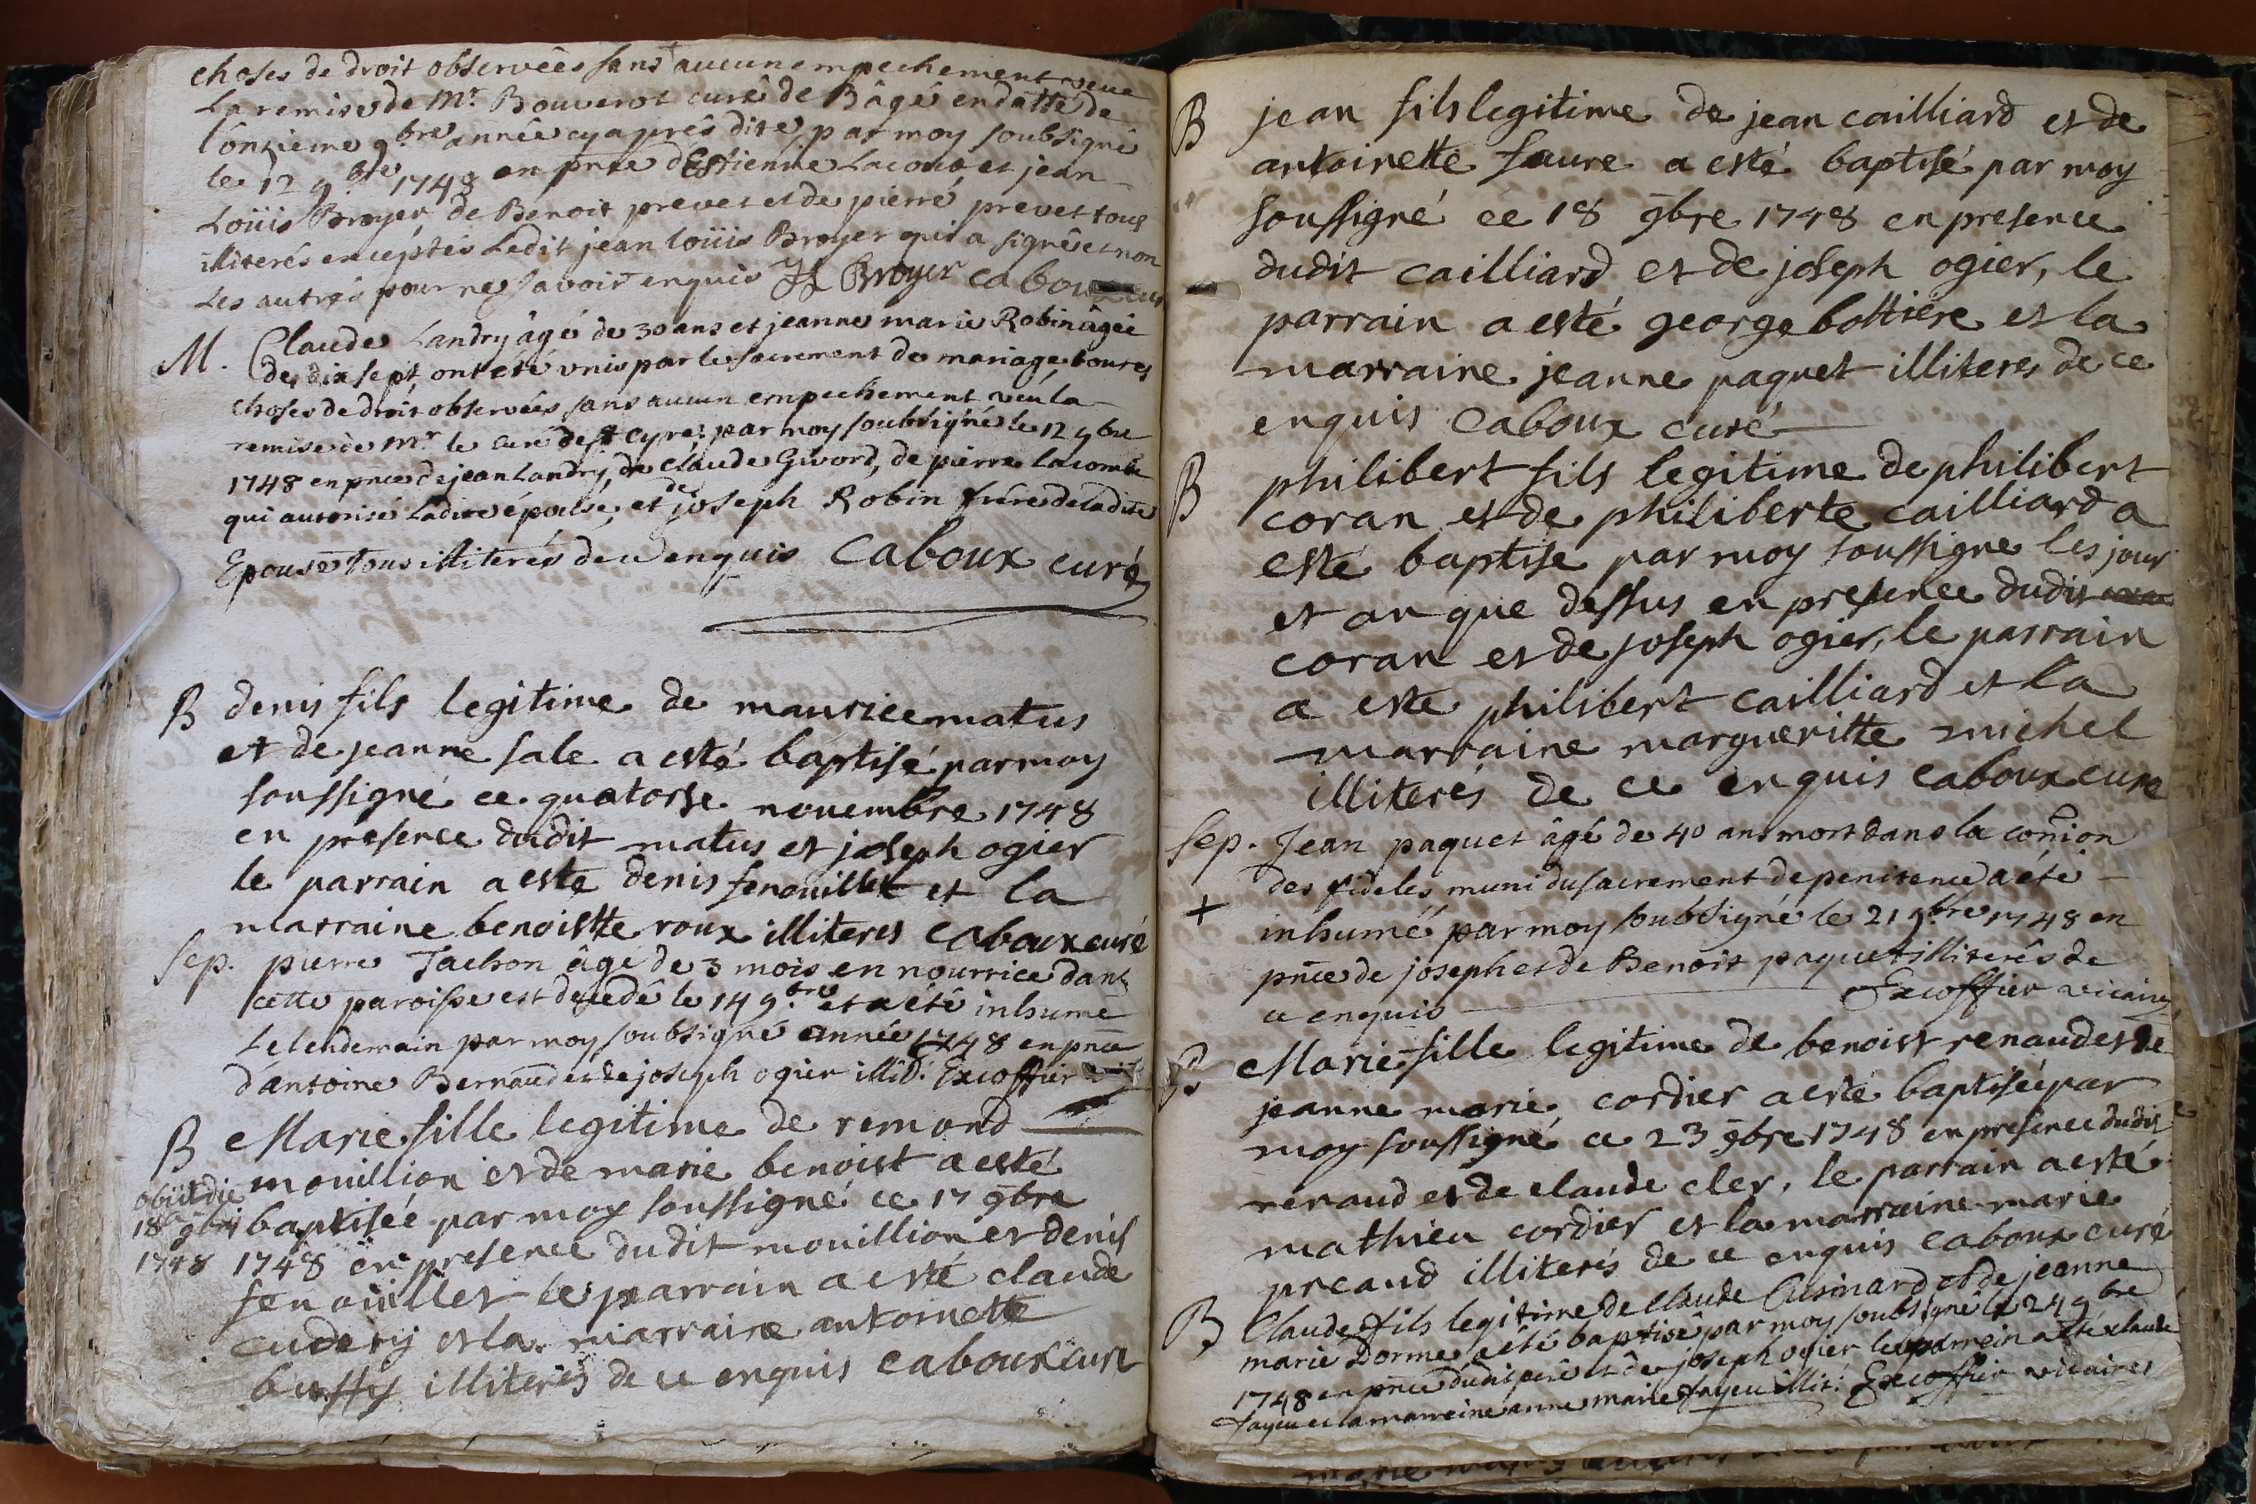 choses de droit observées sans aucun empechement veue
La remise de Mr. Bouverot curé de Bâgé en datte de
l'onzieme 9bre année cy après dite, par moy soubsigné
le 12 9bre 1748 en pnce d'Estienne Lacoux et jean
Loüis Broyer de Benoit prevet et de pierre prevet tous
illiterés enceptés Ledit jean loüis Broyer qui a signé et non
Les autres pour ne savoir enquis JL Broyer caboux
M. Claude Landry âgé de 30 ans et jeanne marie Robin âgée
de dix sept, ont été unis par le sacrement de mariage, toutes
choses de droit observées sans aucun empechement veu la
remise de Mr le curé de st Cyre, par moy soubsigné le 12 9bre
1748 en pnce de jean Landry, de Claude Givord, de pierre Lacombe
qui autorise Ladite épouse, et de joseph Robin frére de ladite
Epouse tous illiterés de ce enquis Caboux curé
B denis fils legitime de maurice matus
et de jeanne sale a esté baptisé par moy
soussigné ce quatorse novembre 1748
en presence dudit matus et joseph ogier
le parrain a este denis fenouillet et la
marraine benoistte roux illiteres Caboux curé
Sep. pierre Tachon âgé de 3 mois en nourrice dans
cette paroisse est decedé le 14 9bre et a été inhumé
Le lendemain par moy soubsigné année 1748 en pnce
d'antoine Bernaud et de joseph ogier illit. Excoffier
B Marie fille legitime de remond
mouillion et de marie benoist a esté
obiit die
18a 9bris baptisée par moy soussigné ce 17 9bre
1748 1748 en presence dudit mouillion et denis
fenouillet le parrain a esté claude
cudery et la marraine antoinette
buffy illiterés de ce enquis caboux curé
B jean fils legitime de jean cailliard et de
antoinette faure a esté baptisé par moy
soussigné ce 18 9bre 1748 en presence
dudit cailliard et de joseph ogier, le
parrain a esté george bottiere et la
marraine jeanne paquet illiteres de ce
enquis Caboux curé
B philibert fils legitime de philibert
coran et de philiberte cailliard a
esté baptise par moy soussigne les jour
et an que dessus en presence dudit
coran et de joseph ogier, le parrain
a este philibert cailliard et la
marraine margueritte michel
illiterés de ce enquis caboux cure
Sep. Jean paquet âgé de 40 ans mort dans la comion
des fideles muni du sacrement de penitence a été
+ inhumé par moy soubsigné le 21 9bre 1748 en
pnce de joseph et de Benoit paquet illiterés de
ce enquis Excoffier vicaire
B Marie fille legitime de benoist renaud et de
jeanne marie cordier a esté baptisée par
moy soussigné ce 23 9bre 1748 en presence dudit
renaud et de claude cler, le parrain a esté
mathieu cordier et la marraine marie
preaud illiterés de ce enquis caboux curé
B Claude fils legitime de Claude Cusinard et de jeanne
marie Dorme a été baptisé par moy soubsigné le 24 9bre
1748 en pnce dudit pere et de joseph ogier le parrein a été claude
fayeu et la marreine anne marie fayeu illit: Excoffier vicaire